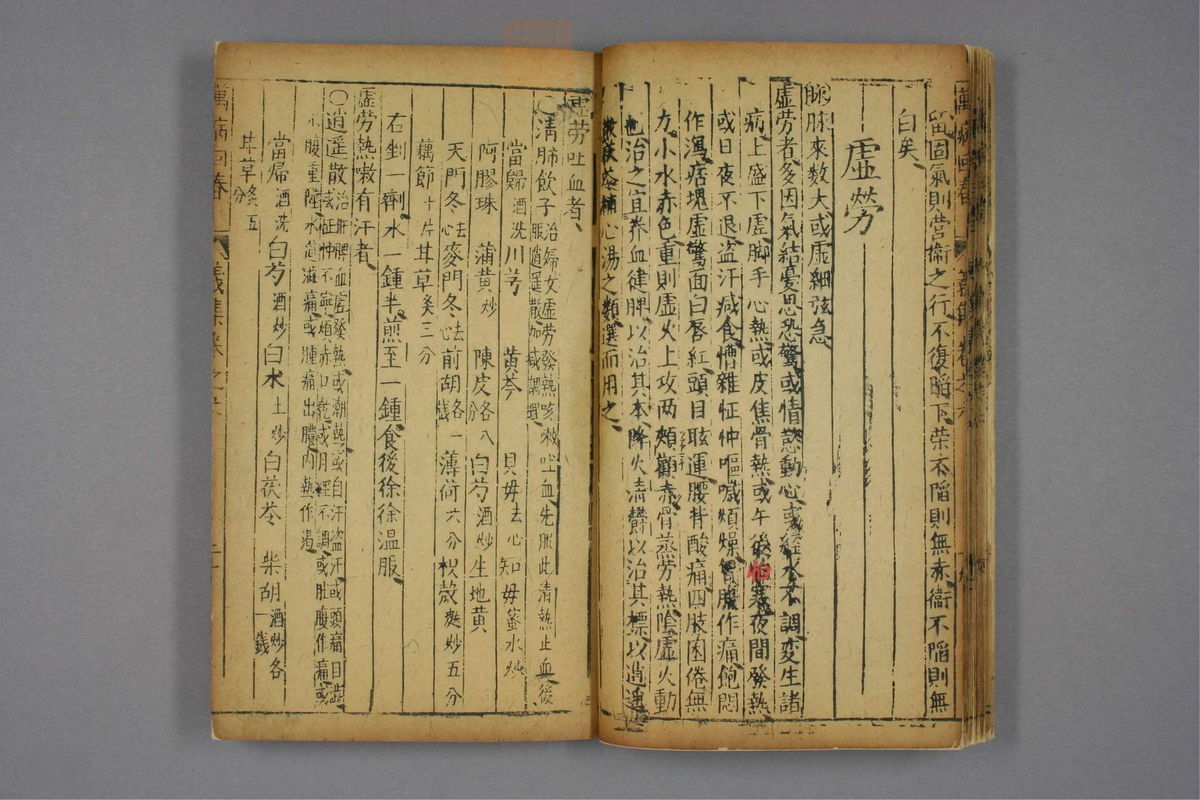 留固氣則営衛之行不復陷下榮不陷則無赤衛不陷則無
白矣
虛勞
脉脉來数大或虛細弦急
虛労者多因氣結憂思恐驚或情慾動心或經水不調変生諸
病上盛下虛脚手心熱或皮焦骨熱或午後怕寒夜間發熱
或日夜不退盗汗减食嘈雜怔忡嘔噦煩燥胷腹作痛飽悶
作瀉痞塊虛驚面白唇紅頭目眩運腰背酸痛四肢困倦無
力小水赤色重則虛火上攻两頬顴赤骨蒸労熱陰虛火動
也治之宜养血健脾以治其本降火清欝以治其標以逍遥
散茯苓補心湯之類選而用之
虛労吐血者
○清肺飲子治婦女虛労發熱咳嗽吐血先服此清熱止血後
服逍遥散加减調理
當歸酒洗 川芎 黄芩 貝母去心 知母蜜水炒
阿膠珠 蒲黄炒 陳皮各八分 白芍酒炒 生地黄
天門冬去心 麥門冬去心 前胡各一錢 薄荷六分 枳殼麸炒五分
藕節十片 甘草炙三分
右剉一劑水一鍾半煎至一鍾食後徐徐温服
虛労熱嗽有汗者
○逍遥散治肝脾血虛發熱或潮熱或自汗盗汗或頭痛目澁
或怔忡不寧頰赤口乾或月經不調或肚腹作痛或
小腹重墜水道澁痛或腫痛出膿内熱作渴
當歸酒洗 白芍酒炒 白朮土炒 白茯苓 柴胡酒炒各一錢
甘草炙五分
萬病回春 義集卷之六